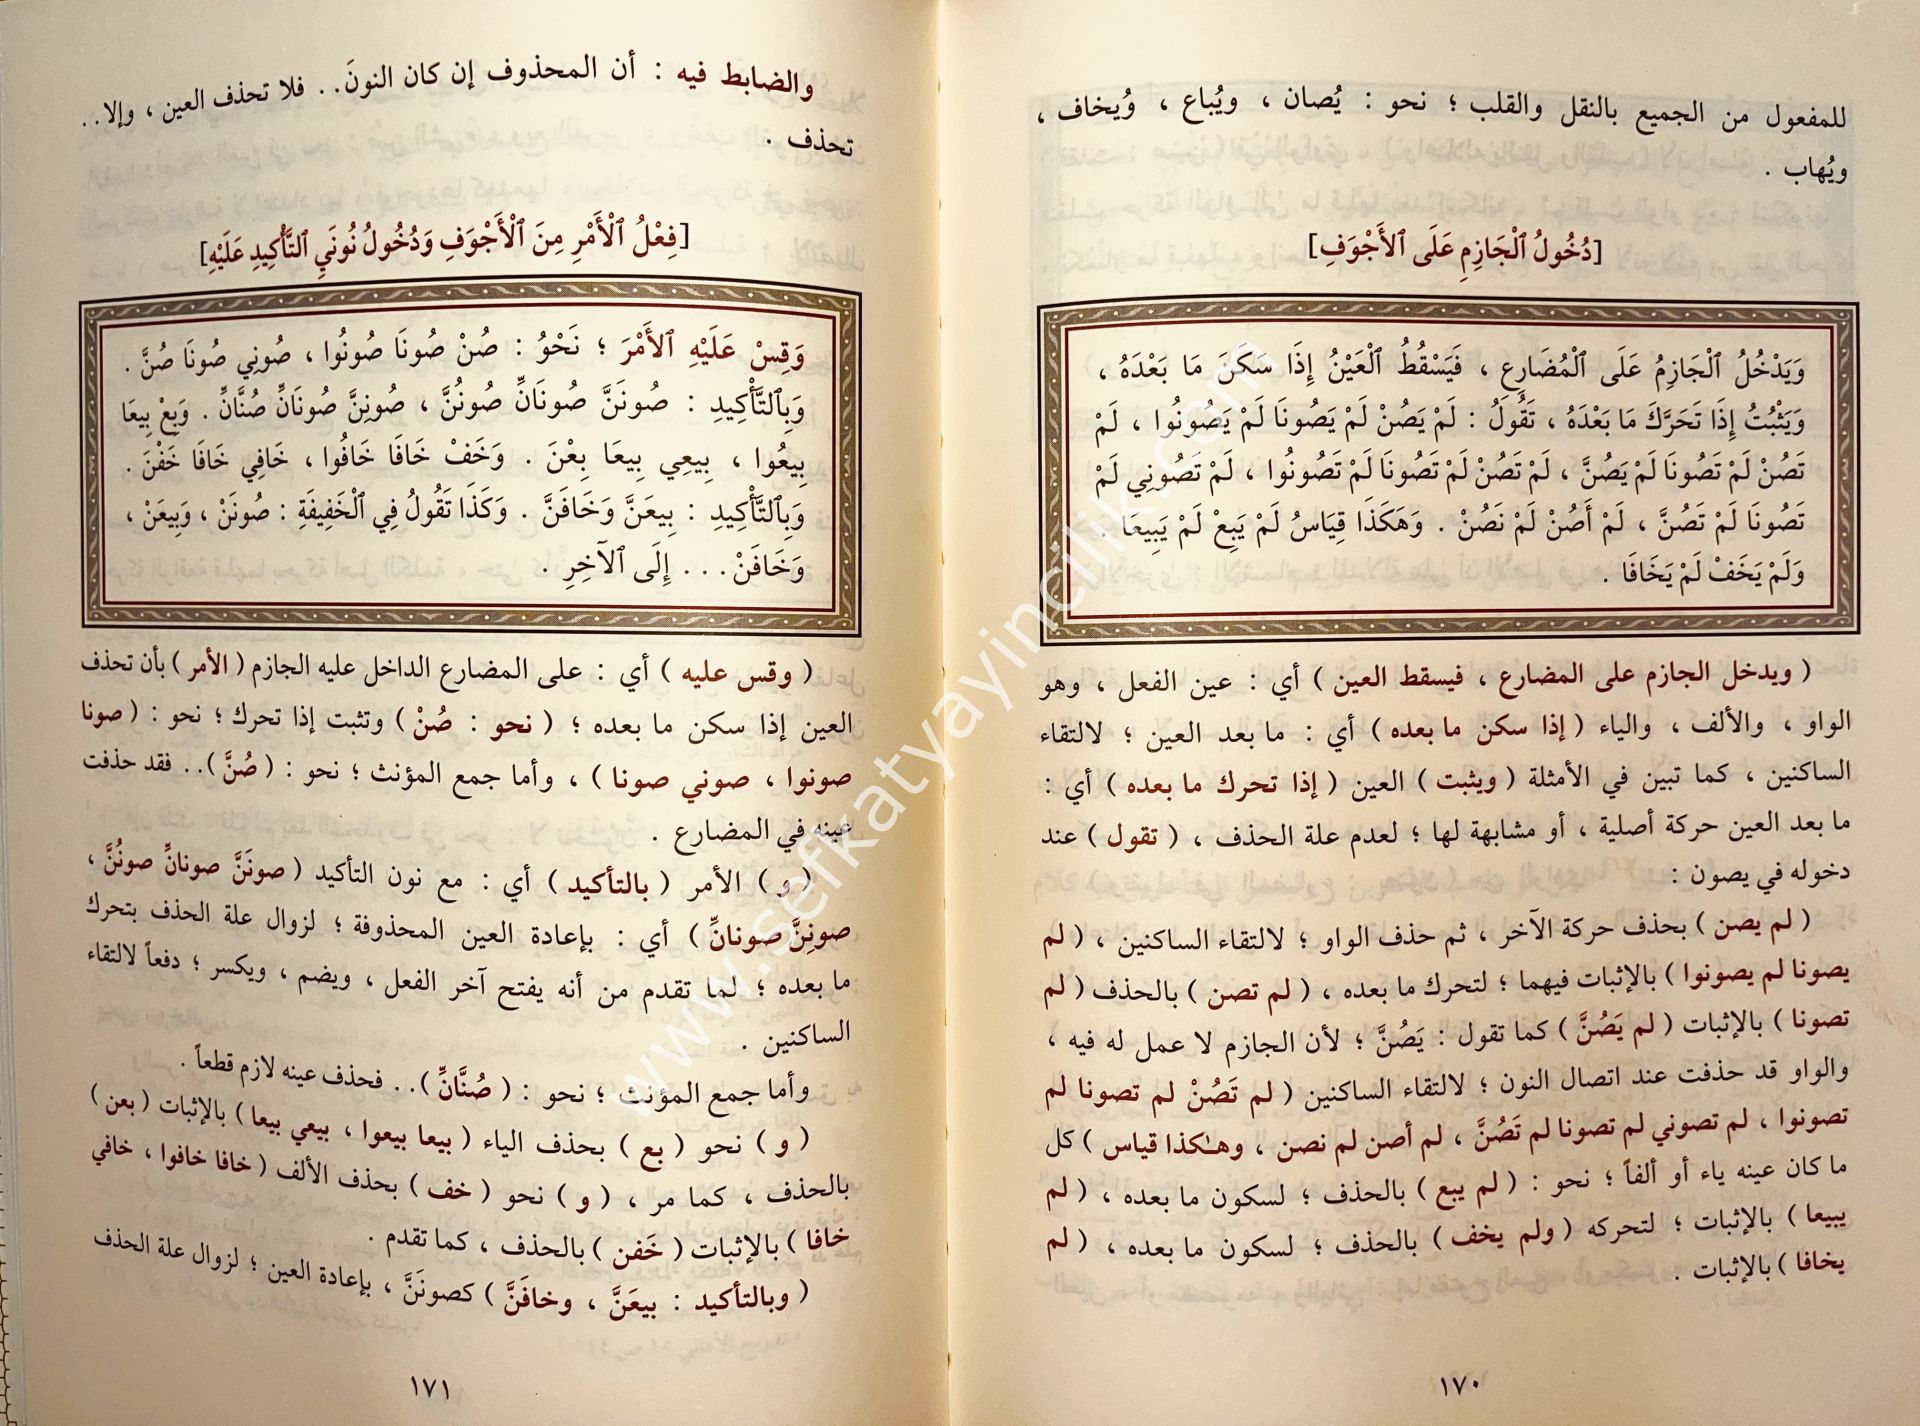 للمفعول من الجميع بالنقل والقلب ؛ نحو : يُصان ، ويُباع ، ويُخاف ،
ويُهاب .
[دُخُولُ ٱلْجَازِمِ عَلَى ٱلأَجْوَفِ]
وَيَدْخُلُ ٱلْجَازِمُ عَلَى ٱلْمُضَارِعِ ، فَيَسْقُطُ ٱلْعَيْنُ إِذَا سَكَنَ مَا بَعْدَهُ ،
وَيَثْبُتُ إِذَا تَحَرَّكَ مَا بَعْدَهُ ، تَقُولُ : لَمْ يَصُنْ لَمْ يَصُونَا لَمْ يَصُونُوا ، لَمْ
تَصُنْ لَمْ تَصُونَا لَمْ يَصُنَّ ، لَمْ تَصُنْ لَمْ تَصُونَا لَمْ تَصُونُوا ، لَمْ تَصُونِي لَمْ
تَصُونَا لَمْ تَصُنَّ ، لَمْ أَصُنْ لَمْ نَصُنْ . وَهَكَذَا قِيَاسُ لَمْ يَبِعْ لَمْ يَبِيعَا .
وَلَمْ يَخَفْ لَمْ يَخَافَا .
( ويدخل الجازم على المضارع ، فيسقط العين ) أي : عين الفعل ، وهو
الواو ، والألف ، والياء ( إذا سكن ما بعده ) أي : ما بعد العين ؛ لالتقاء
الساكنين ، كما تبين في الأمثلة ( ويثبت ) العين ( إذا تحرك ما بعده ) أي :
ما بعد العين حركة أصلية ، أو مشابهة لها ؛ لعدم علة الحذف ، ( تقول ) عند
دخوله في يصون :
( لم يصن ) بحذف حركة الآخر ، ثم حذف الواو ؛ لالتقاء الساكنين ، ( لم
يصونا لم يصونوا ) بالإثبات فيهما ؛ لتحرك ما بعده ، ( لم تصن ) بالحذف ( لم
تصونا ) بالإثبات ( لم يَصُنَّ ) كما تقول : يَصُنَّ ؛ لأن الجازم لا عمل له فيه ،
والواو قد حذفت عند اتصال النون ؛ لالتقاء الساكنين ( لم تَصُنْ لم تصونا لم
تصونوا ، لم تصوني لم تصونا لم تَصُنَّ ، لم أصن لم نصن ، وهـٰكذا قياس ) كل
ما كان عينه ياء أو ألفاً ؛ نحو : ( لم يبع ) بالحذف ؛ لسكون ما بعده ، ( لم
يبيعا ) بالإثبات ؛ لتحركه ( ولم يخف ) بالحذف ؛ لسكون ما بعده ، ( لم
يخافا ) بالإثبات .
١٧٠
والضابط فيه : أن المحذوف إن كان النونَ.. فلا تحذف العين ، وإلا..
تحذف .
[فِعْلُ ٱلْأَمْرِ مِنَ ٱلْأَجْوَفِ وَدُخُولُ نُونَيِ ٱلتَّأْكِيدِ عَلَيْهِ]
وَقِسْ عَلَيْهِ ٱلأَمْرَ ؛ نَحْوُ : صُنْ صُونَا صُونُوا ، صُونِي صُونَا صُنَّ .
وَبِٱلتَّأْكِيدِ : صُونَنَّ صُونَانِّ صُونُنَّ ، صُونِنَّ صُونَانِّ صُنَّانِّ . وَبِعْ بِيعَا
بِيعُوا ، بِيعِي بِيعَا بِعْنَ . وَخَفْ خَافَا خَافُوا ، خَافِي خَافَا خَفْنَ .
وَبِٱلتَّأْكِيدِ : بِيعَنَّ وَخَافَنَّ . وَكَذَا تَقُولُ فِي ٱلْخَفِيفَةِ : صُونَنْ ، وَبِيعَنْ ،
وَخَافَنْ... إِلَى ٱلآخِرِ .
( وقس عليه ) أي : على المضارع الداخل عليه الجازم ( الأمر ) بأن تحذف
العين إذا سكن ما بعده ؛ ( نحو : صُنْ ) وتثبت إذا تحرك ؛ نحو : ( صونا
صونوا ، صوني صونا ) ، وأما جمع المؤنث ؛ نحو : ( صُنَّ ).. فقد حذفت
عينه في المضارع .
( و ) الأمر ( بالتأكيد ) أي : مع نون التأكيد ( صونَنَّ صونانِّ صونُنَّ ،
صونِنَّ صونانِّ ) أي : بإعادة العين المحذوفة ؛ لزوال علة الحذف بتحرك
ما بعده ؛ لما تقدم من أنه يفتح آخر الفعل ، ويضم ، ويكسر ؛ دفعاً لالتقاء
الساكنين .
وأما جمع المؤنث ؛ نحو : ( صُنَّانِّ ).. فحذف عينه لازم قطعاً .
( و ) نحو ( بع ) بحذف الياء ( بيعا بيعوا ، بيعي بيعا ) بالإثبات ( بعن )
بالحذف ، كما مر ، ( و ) نحو ( خف ) بحذف الألف ( خافا خافوا ، خافي
خافا ) بالإثبات ( خَفن ) بالحذف ، كما تقدم .
( وبالتأكيد : بيعَنَّ ، وخافَنَّ ) كصونَنَّ ، بإعادة العين ؛ لزوال علة الحذف
١٧١
www.sefkatyayincilik.com